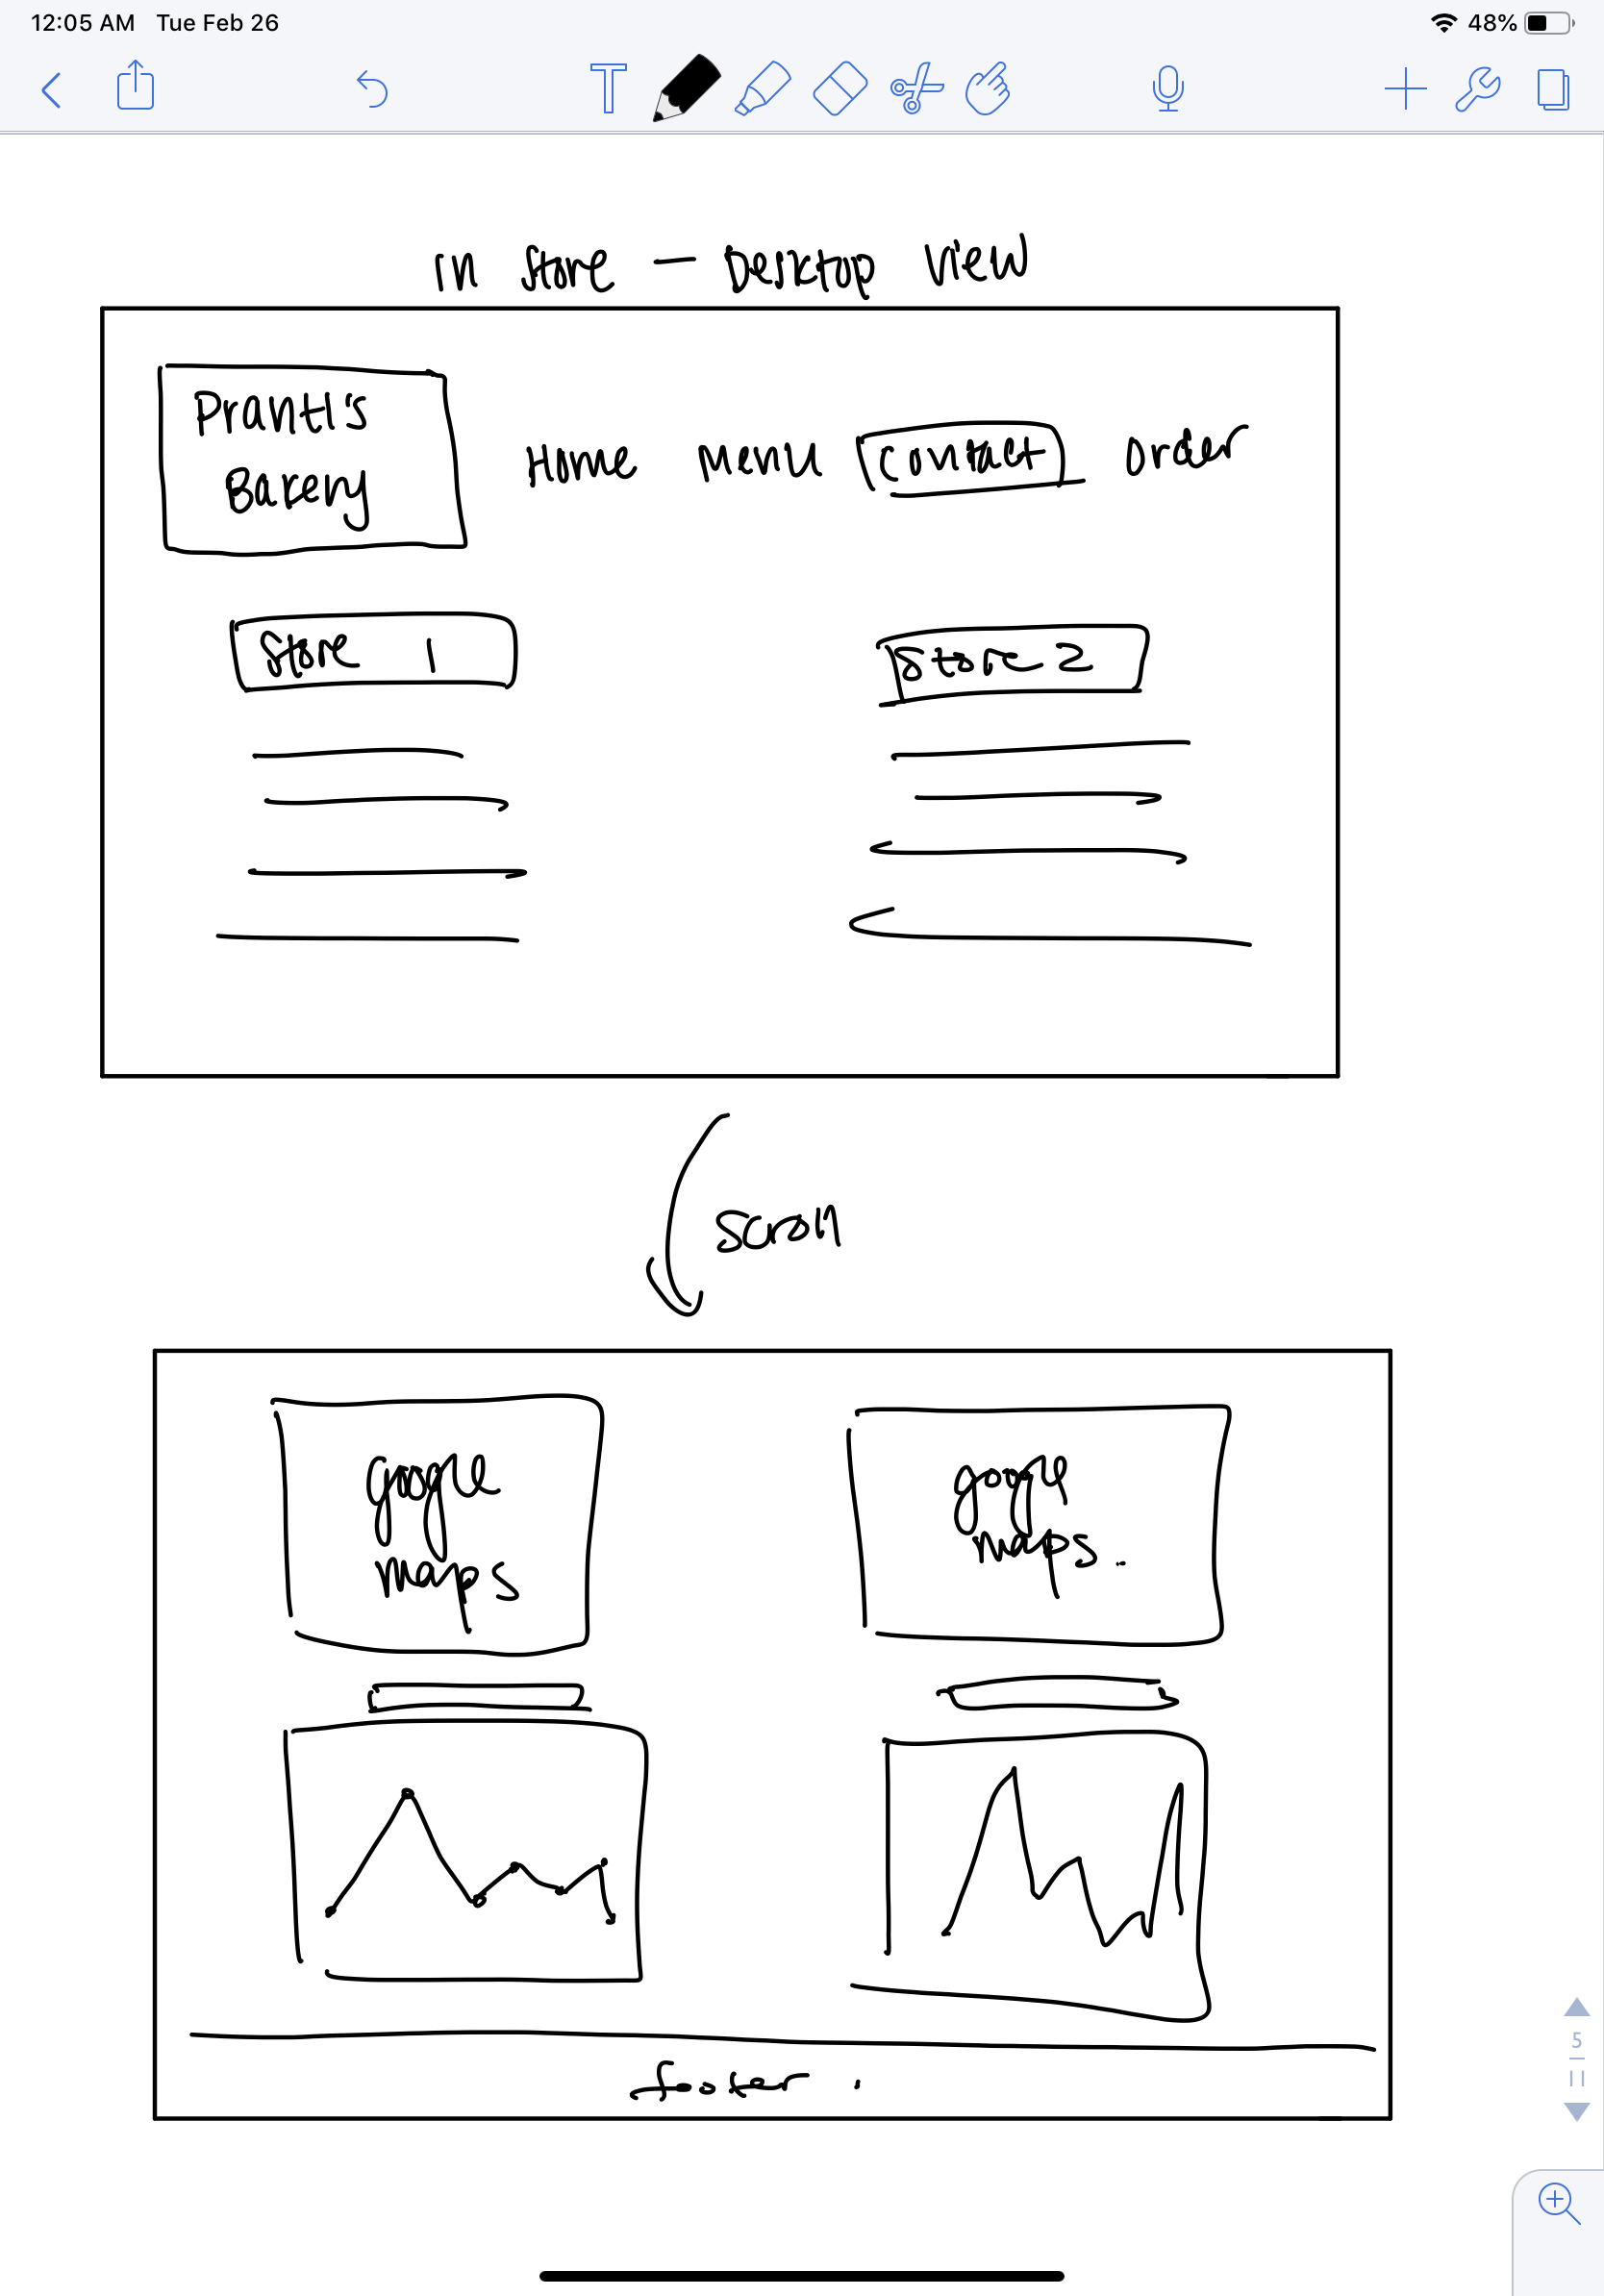 12:05 AM Tue Feb 26
48%
in store - Desktop view
Prantl's
Bakery
Home Menu Contact order
Store 1
Store 2
scroll
google
maps
google
maps.
footer.
5
11